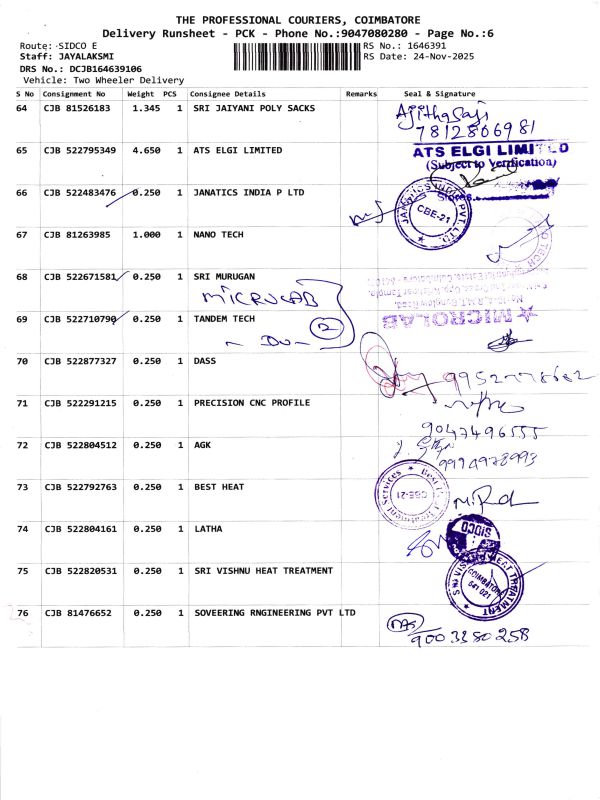 THE PROFESSIONAL COURIERS, COIMBATORE
Delivery Runsheet - PCK - Phone No.:9047080280 - Page No.:6
Route: SIDCO E
RS No.: 1646391
Staff: JAYALAKSMI
RS Date: 24-Nov-2025
DRS No.: DCJB164639106
Vehicle: Two Wheeler Delivery
S No Consignment No Weight PCS Consignee Details Remarks Seal & Signature
64 CJB 81526183 1.345 1 SRI JAIYANI POLY SACKS
7812806981
65 CJB 522795349 4.650 1 ATS ELGI LIMITED
ATS ELGI LIMITED
(Subject to Verification)
66 CJB 522483476 0.250 1 JANATICS INDIA P LTD
CBE-21
67 CJB 81263985 1.000 1 NANO TECH
68 CJB 522671581 0.250 1 SRI MURUGAN
MICROLAB
69 CJB 522710790 0.250 1 TANDEM TECH
MICROLAB
- Do - 2
70 CJB 522877327 0.250 1 DASS
71 CJB 522291215 0.250 1 PRECISION CNC PROFILE
9047496555
72 CJB 522804512 0.250 1 AGK
9994978993
73 CJB 522792763 0.250 1 BEST HEAT
Best Heat Treatment Services
CBE-21
74 CJB 522804161 0.250 1 LATHA
SIDCO
75 CJB 522820531 0.250 1 SRI VISHNU HEAT TREATMENT
SRI VISHNU HEAT TREATMENT
COIMBATORE
641 021
76 CJB 81476652 0.250 1 SOVEERING RNGINEERING PVT LTD
9003380258